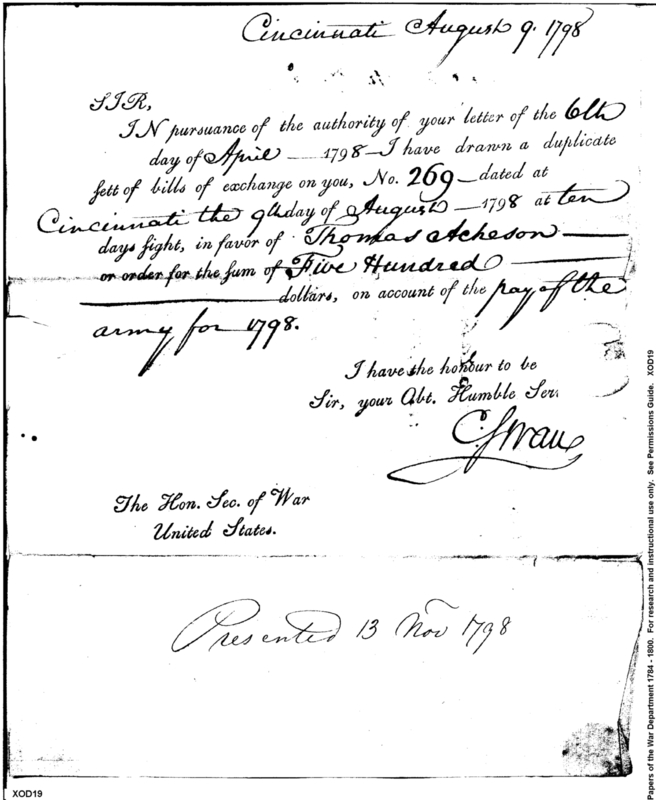 Cincinnati August 9. 1798
SIR,
IN pursuance of the authority of your letter of the 6th
day of April — 1798 — I have drawn a duplicate
sett of bills of exchange on you, No. 269 — dated at
Cincinnati the 9th day of August — 1798 at ten
days sight, in favor of Thomas Acheson —
or order for the sum of Five Hundred —
— dollars, on account of the pay of the
army for 1798.
I have the honour to be
Sir, your Obt. Humble Ser.
C Swan
The Hon. Sec. of War
United States.
Presented 13 Nov 1798
XOD19
Papers of the War Department 1784 - 1800. For research and instructional use only. See Permissions Guide. XOD19